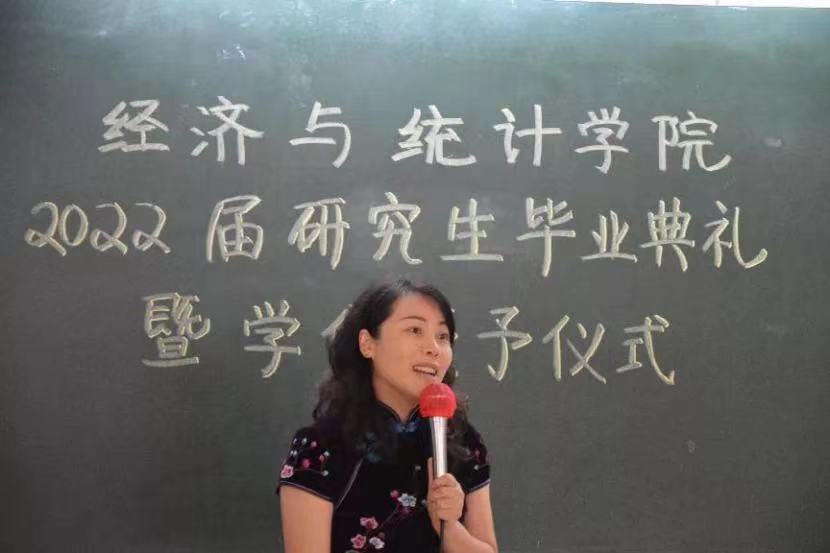 经济与统计学院
2022届研究生毕业典礼
暨学 予仪式